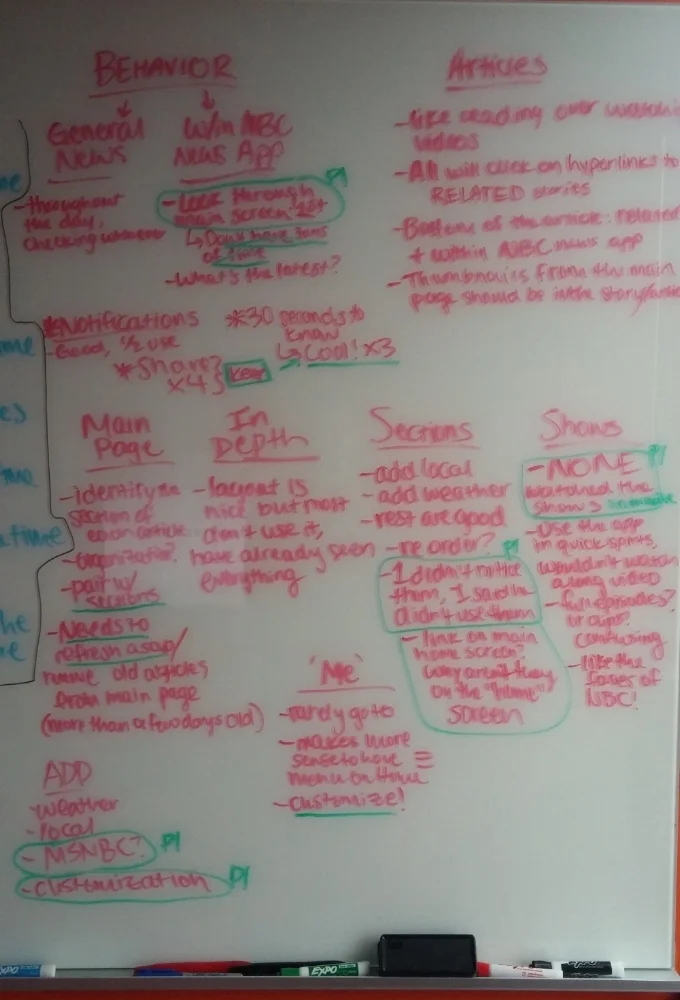 BEHAVIOR
General
News
-throughout
the day,
checking whenever
w/in NBC
News App
-Look through
main screen 1st
↳Don't have tons
of time
-What's the latest?
P1
Articles
-like reading over watching
videos
-All will click on hyperlinks to
RELATED stories
-Bottom of the article: related
+ within NBC news app
-Thumbnails from the main
page should be in the story/article
*Notifications
-Good, 1/2 use
*Share?
x4
keep
*30 seconds to
know
↳Cool! x3
Main
Page
-identify the
section of
each article
-organization?
-pair w/
sections
-Needs to
refresh asap/
remove old articles
from main page
(more than a few days old)
In
Depth
-layout is
nice but most
don't use it,
have already seen
everything
Sections
-add local
-add weather
-rest are good
-reorder?
P1
-1 didn't notice
them, 1 said he
didn't use them
-link on main
home screen?
why aren't they
on the "home"
screen
Shows
-NONE
watched the
shows
P1
-Use the app
in quick spurts,
wouldn't watch
a long video
-full episodes?
or clips?
confusing
-like the
faces of
NBC!
'Me'
-rarely go to
-makes more
sense to have ≡
menu on Home
-customize!
ADD
-weather
-local
-MSNBC? P1
-customization P1
me
me
es
me
a time
the
e
EXPO
EXPO
EXPO